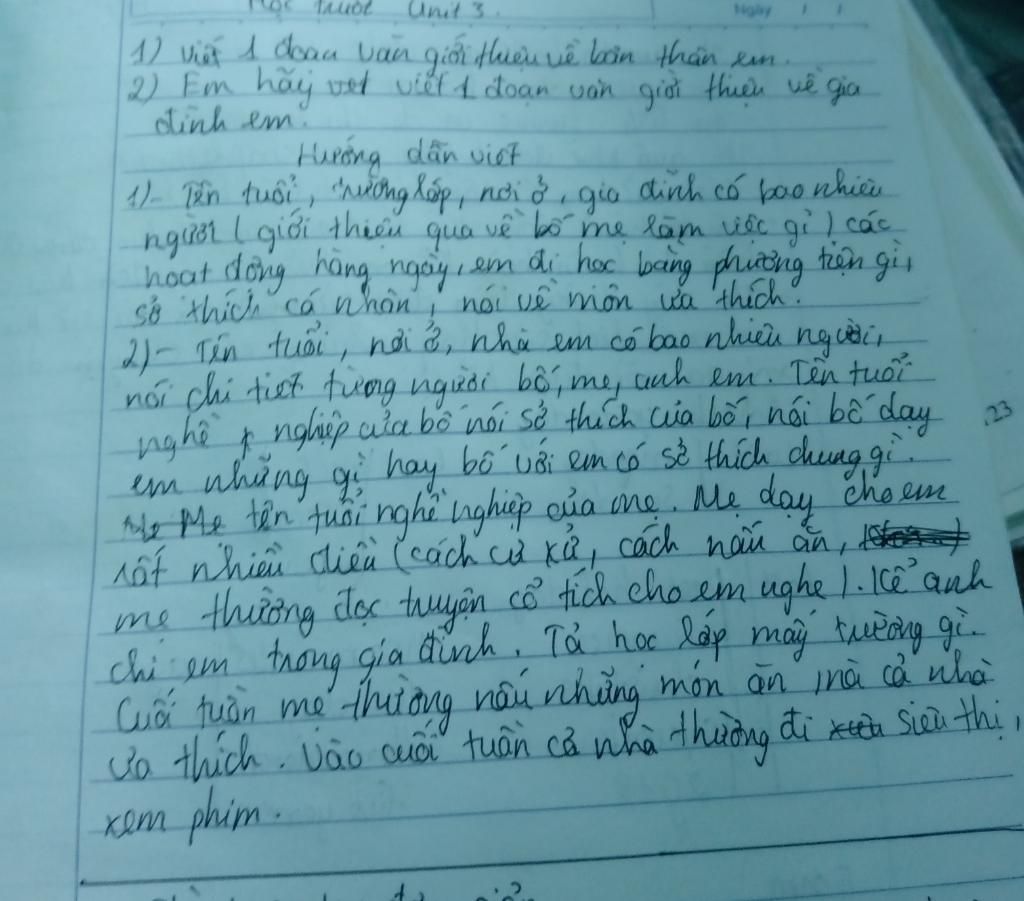 Học thuộc Unit 3.
Ngày / /
1) Viết 1 đoạn văn giới thiệu về bản thân em.
2) Em hãy vet viết 1 đoạn văn giới thiệu về gia
đình em.
Hướng dẫn viết
1)- Tên tuổi, trường lớp, nơi ở, gia đình có bao nhiêu
người (giới thiệu qua về bố mẹ làm việc gì) các
hoạt động hàng ngày, em đi học bằng phương tiện gì,
sở thích cá nhân, nói về môn ưa thích.
2)- Tên tuổi, nơi ở, nhà em có bao nhiêu người,
nói chi tiết từng người bố, mẹ, anh em. Tên tuổi
nghề nghiệp của bố nói sở thích của bố, nói bố dạy
em những gì hay bố với em có sở thích chung gì.
Mẹ tên tuổi nghề nghiệp của mẹ. Mẹ dạy cho em
rất nhiều điều (cách cư xử, cách nấu ăn,
mẹ thường đọc truyện cổ tích cho em nghe). Kể anh
chị em trong gia đình. Tả học lớp mấy trường gì.
Cuối tuần mẹ thường nấu những món ăn mà cả nhà
ưa thích. Vào cuối tuần cả nhà thường đi siêu thị,
xem phim.
23